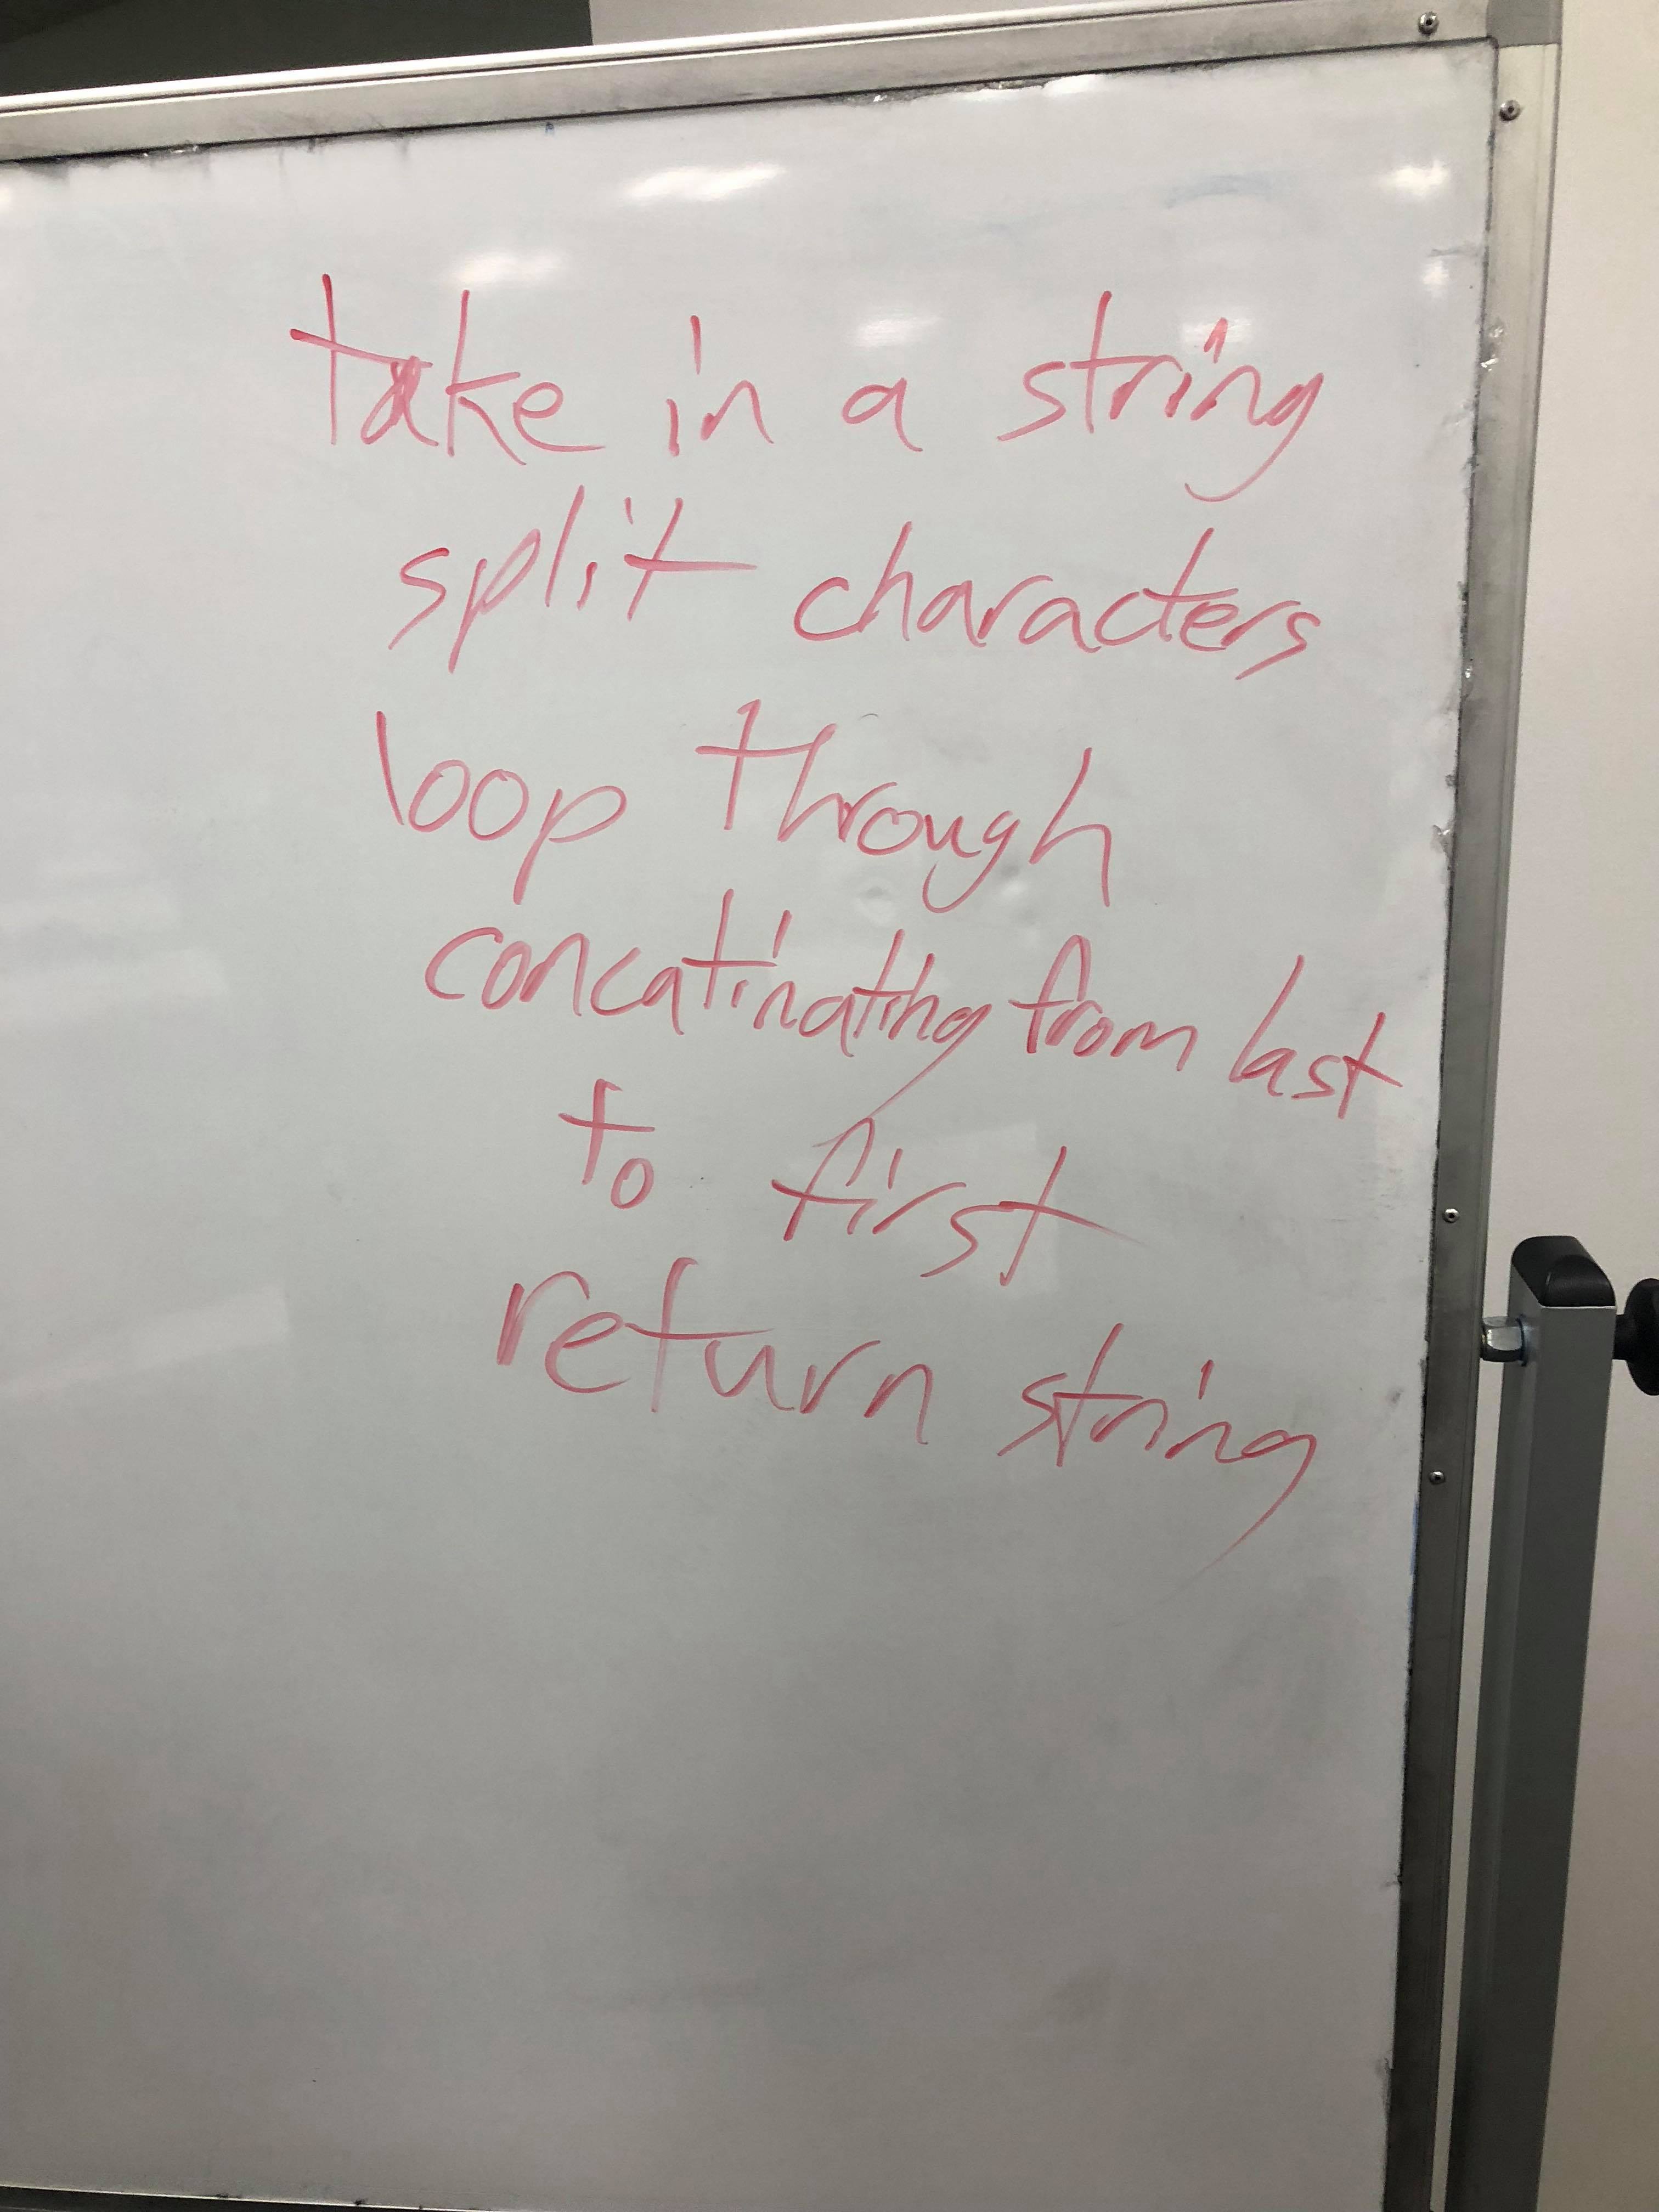 take in a string
split characters
loop through
concatinating from last
to first
return string